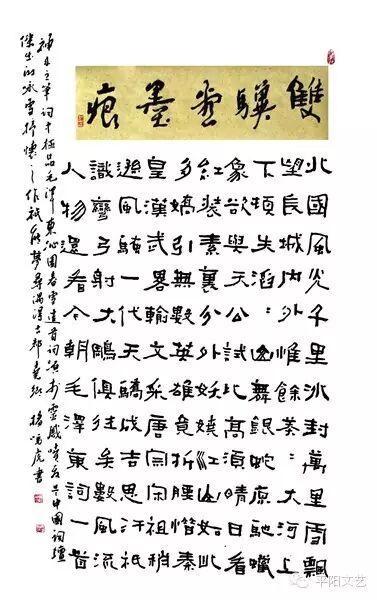 雙驥墨痕
北國風光千里冰封萬里雪飄
望長城內外惟餘莽莽大河上
下頓失滔滔山舞銀蛇原馳蠟
象欲與天公試比高須晴日看
紅裝素裹分外妖嬈江山如此
多嬌引無數英雄競折腰惜秦
皇漢武略輸文采唐宗宋祖稍
遜風騷一代天驕成吉思汗祇
識彎弓射大鵰俱往矣數風流
人物還看今朝毛澤東詞一首
詞十極品毛澤東沁園春雪這首詞中國詞壇
傑出的咏雪抒懷之作虎書
平阳文艺